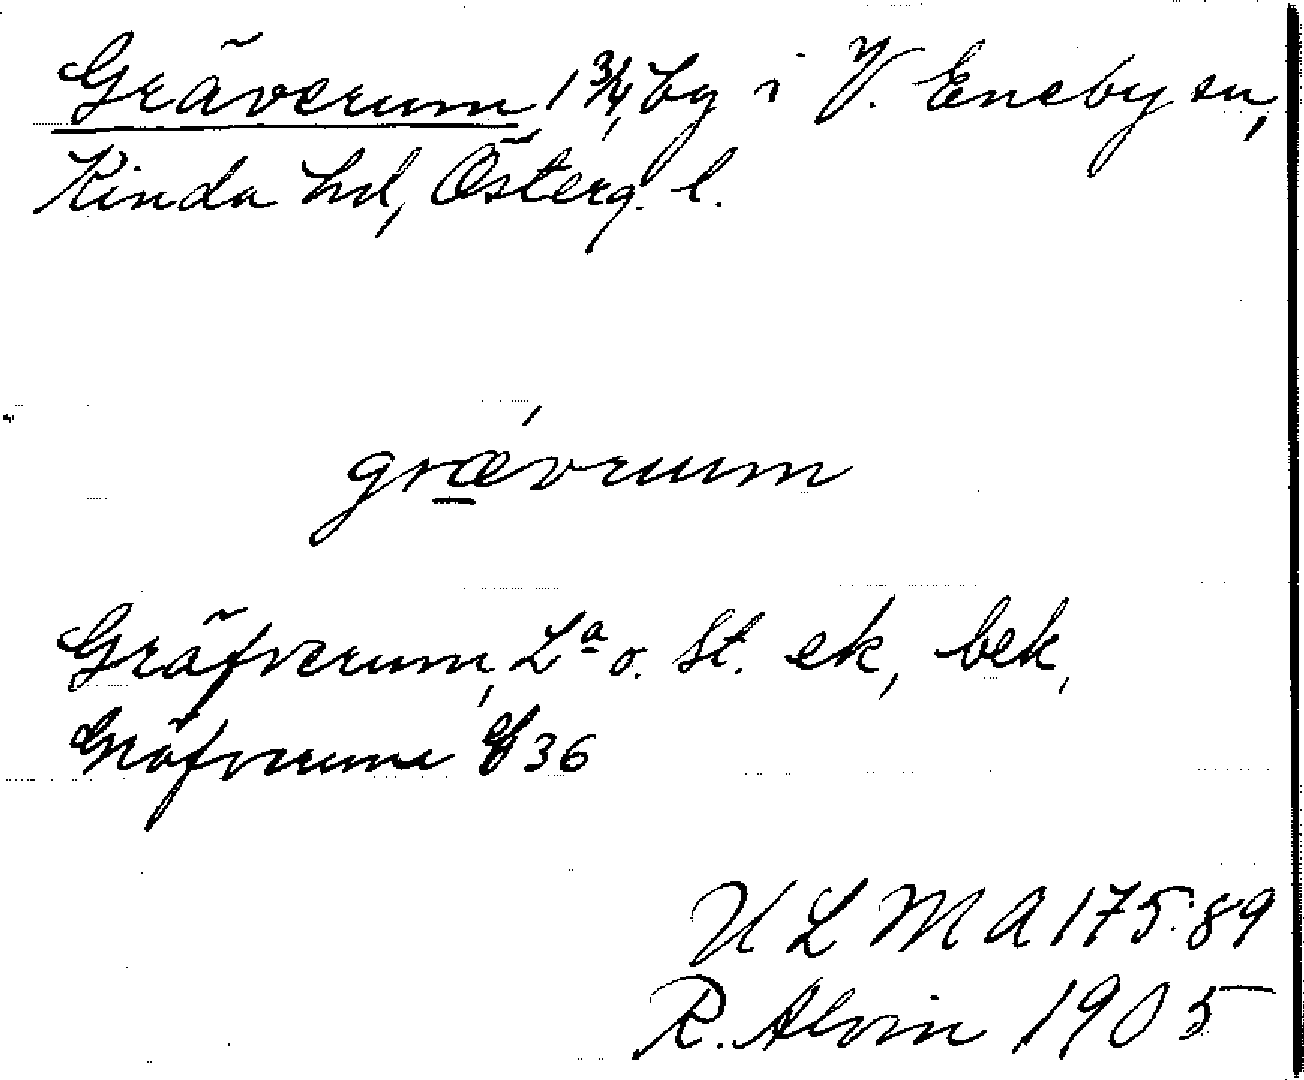 Gräverum 1 3/4, by i V. Eneby sn,
Kinda hd, Österg. l.
grǽvrum
Gräfverum, La o. St. ek, bek,
Gräfverum 36
ULMA 175:89
R. Alvin 1905